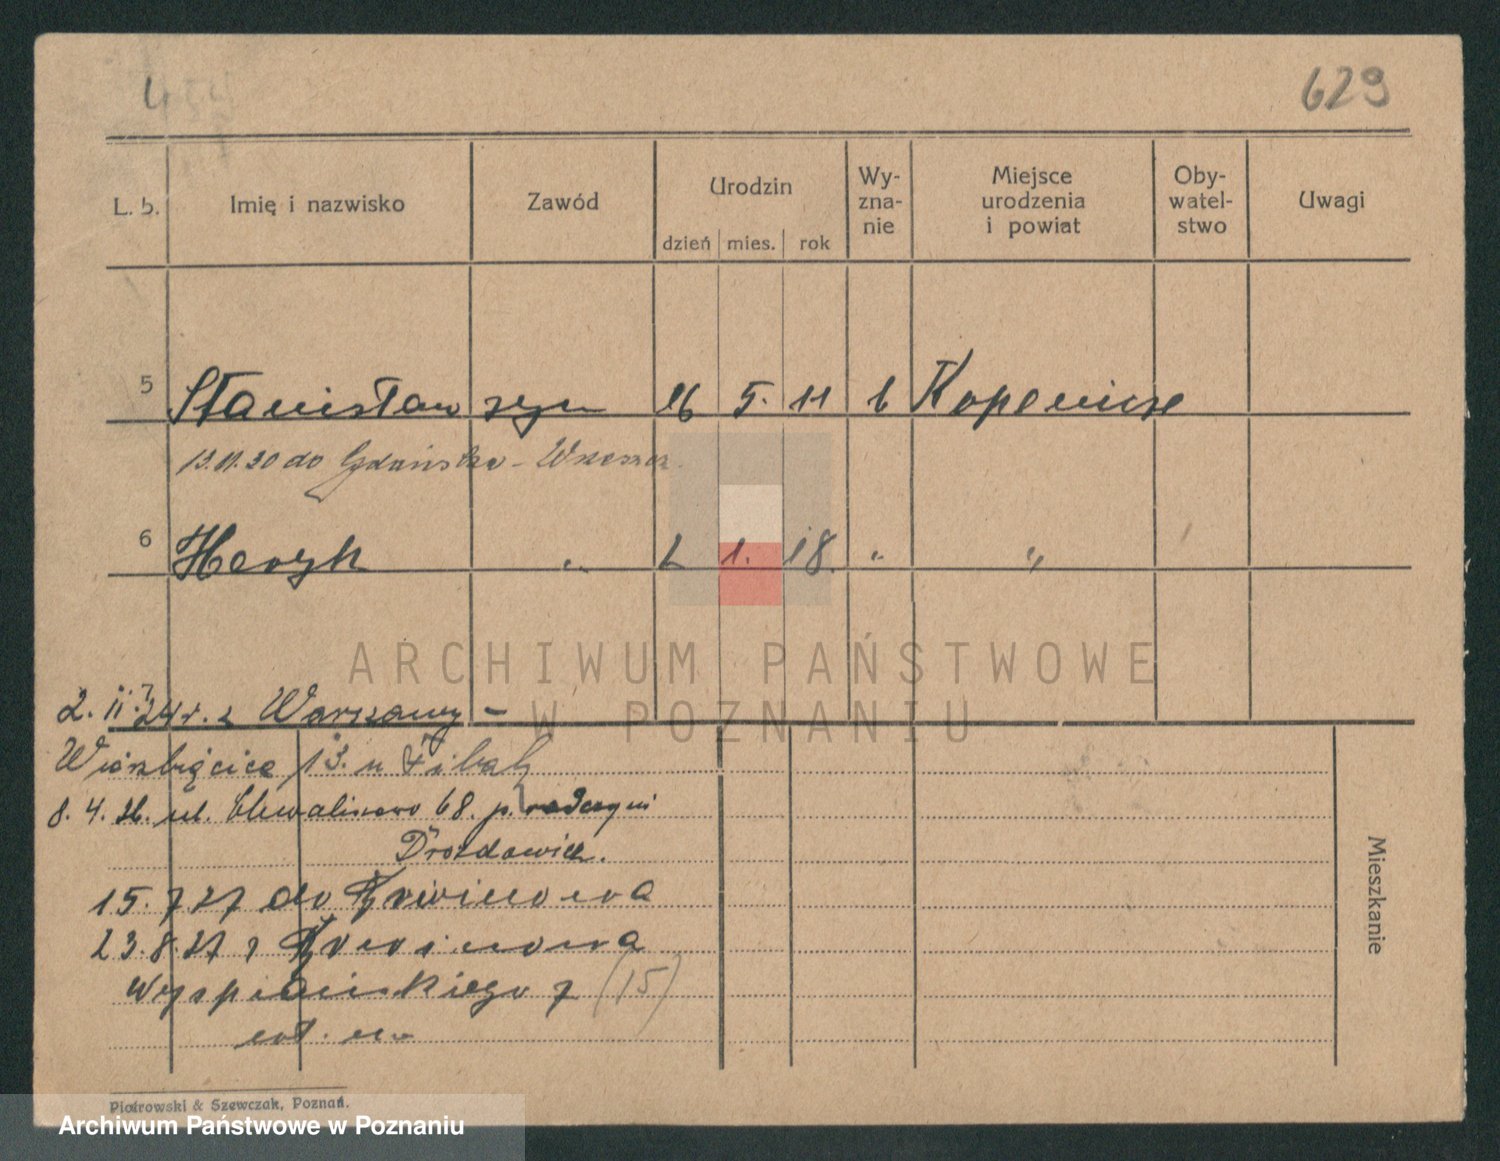 4
629
L. b. Imię i nazwisko Zawód Urodzin Wy-zna-nie Miejsce urodzenia i powiat Oby-watel-stwo Uwagi
dzień mies. rok
5 Stanisław syn 26 5. 11 Kopenice
13.11.30 do Gdańska - Wrzeszcz
6 Henryk " 2 1. 18. " "
ARCHIWUM PAŃSTWOWE
W POZNANIU
2. 11. 24 r. z Warszawy -
Wierzbięcice 13. u
8. 4. 26. ul. Chwaliszewo 68. p.
Drozdowicz.
15. 7 27 do
23. 8. 27 z
Wyspiańskiego 7 (15)
Mieszkanie
Piotrowski & Szewczak, Poznań.
Archiwum Państwowe w Poznaniu